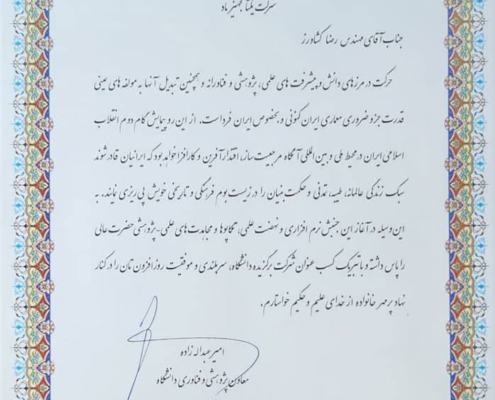 شرکت یکتا تجهیز راد
جناب آقای مهندس رضا کشاورز
حرکت در مرزهای دانش و پیشرفت های علمی، پژوهشی و فناورانه و همچنین تبدیل آنها به مولفه های عینی
قدرت جزء ضروری معماری ایران کنونی و بخصوص ایران فردا است. از این رو پیمایش گام دوم انقلاب
اسلامی ایران در محیط ملی و بین المللی آنگاه مرجعیت ساز، اقتدار آفرین و کارافزا خواهد بود که ایرانیان قادر شوند
سبک زندگی عالمانه، طیبه، تمدنی و حکمت بنیان را در زیست بوم فرهنگی و تاریخی خویش پی ریزی نمایند. به
این وسیله در آغاز این جنبش نرم افزاری و نهضت علمی، تکاپوها و مجاهدت های علمی-پژوهشی حضرت عالی
را پاس داشته و با تبریک کسب عنوان شرکت برگزیده دانشگاه، سربلندی و موفقیت روزافزون تان را در کنار
نهاد پر مهر خانواده از خدای علیم و حکیم خواستارم.
امیر عبداله زاده
معاون پژوهشی و فناوری دانشگاه